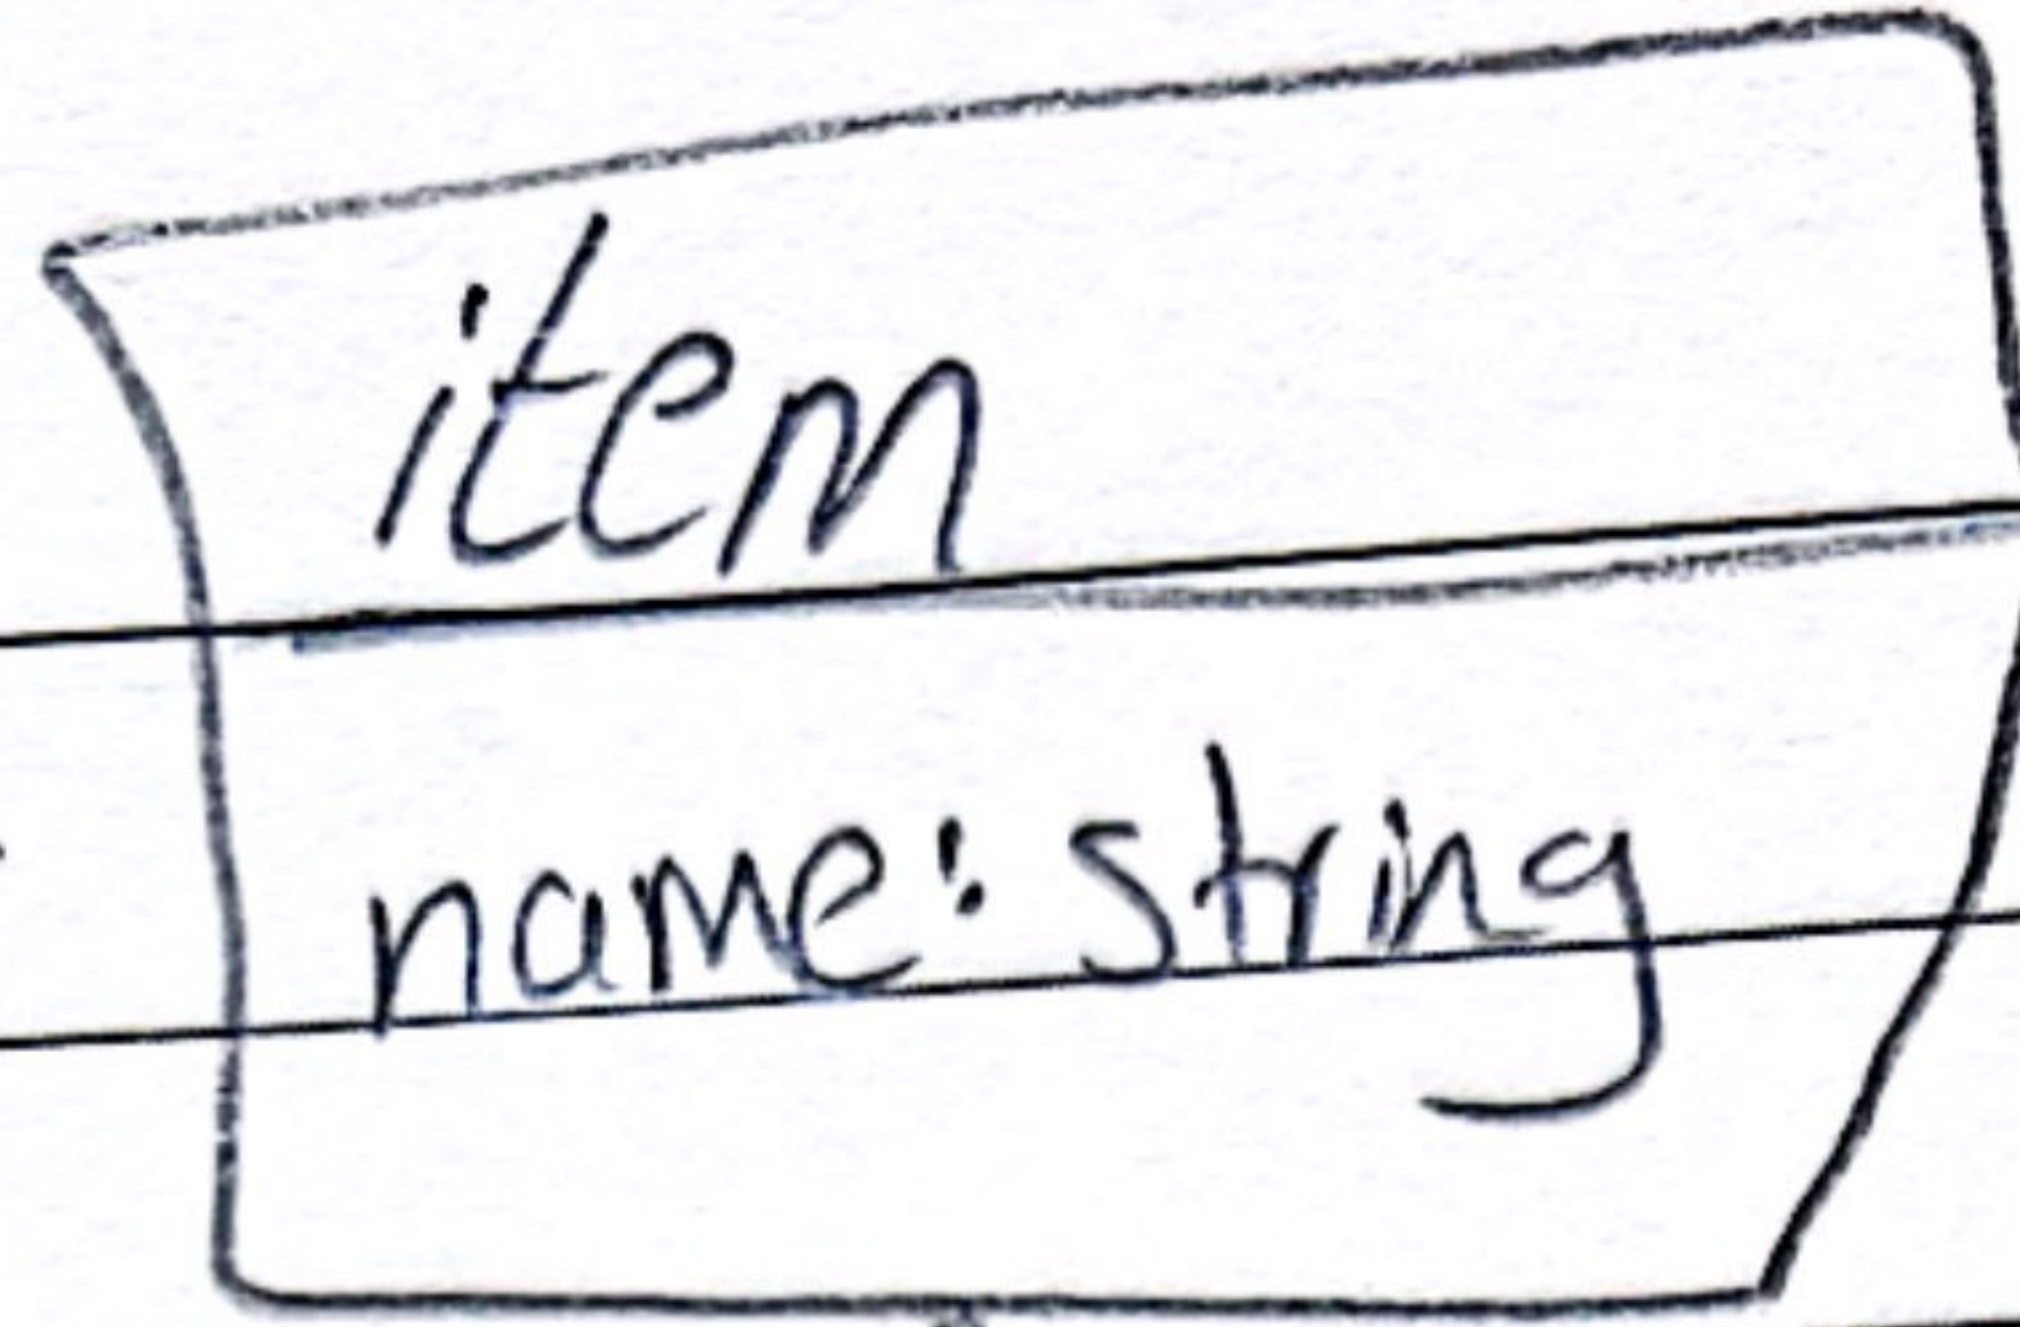 item
name: string